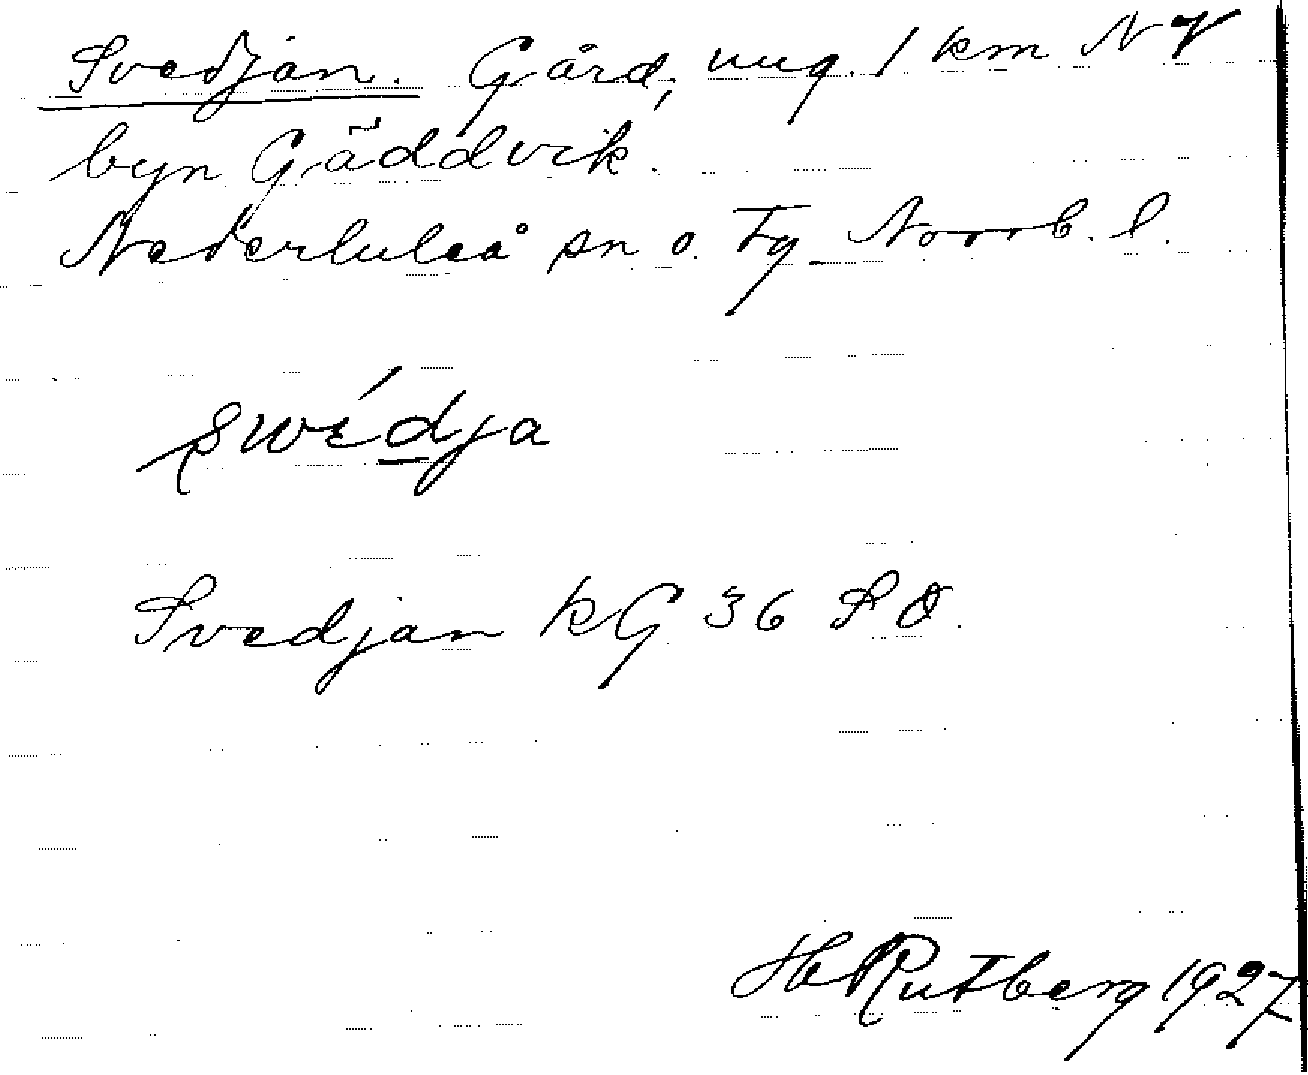 Svedjan. Gård, ung. 1 km NV
byn Gäddvik.
Nederluleå sn o. Tg Norrb. l.
swédja
Svedjan kG 36 SO.
H Rutberg 1927